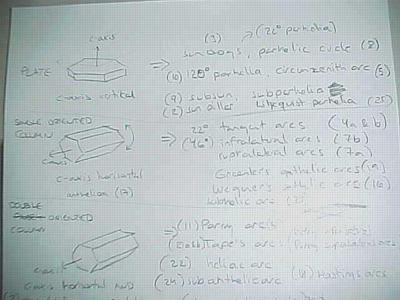 c-axis
(3) → (22° parhelia)
PLATE ⇒ sundogs, parhelic circle (8)
(10) 120° parhelia, circumzenith arc (5)
c-axis vertical
(9) subsun, subparhelia
(2) sun pillar Liljequist parhelia (25)
SINGLE ORIENTED COLUMN ⇒ 22° tangent arcs (4a & b)
(46°) infralateral arcs (7b)
supralateral arcs (7a)
c-axis
c-axis horizontal
Greenler's anthelic arcs
anthelion (17)
Wegener's anthelic arcs (16)
subhelic arc
DOUBLE
ORIENTED
COLUMN
⇒ (11) Parry arcs
Tape's arcs Parry supralateral arcs
(22) heliac arc
c-axis
(24) subanthelic arc Hastings arcs
c-axis horizontal and